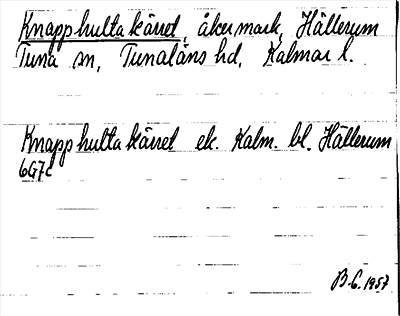 Knapphultakärret, åkermark, Hällerum
Tuna sn, Tunaläns hd, Kalmar l.
Knapphultakärret ek. Kalm. bl. Hällerum
6G7c
B.G. 1957